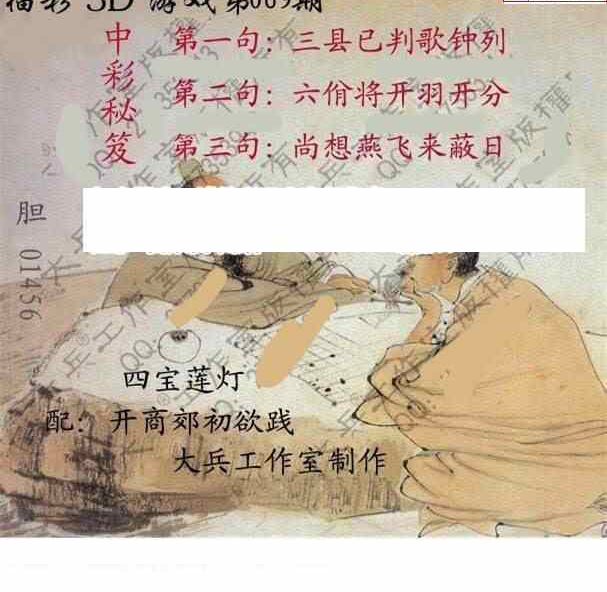 福彩 3D 游戏第009期
中彩秘笈
第一句：三县已判歌钟列
第二句：六佾将开羽开分
第三句：尚想燕飞来蔽日
胆 01456
四宝莲灯
配：开商郊初欲践
大兵工作室制作